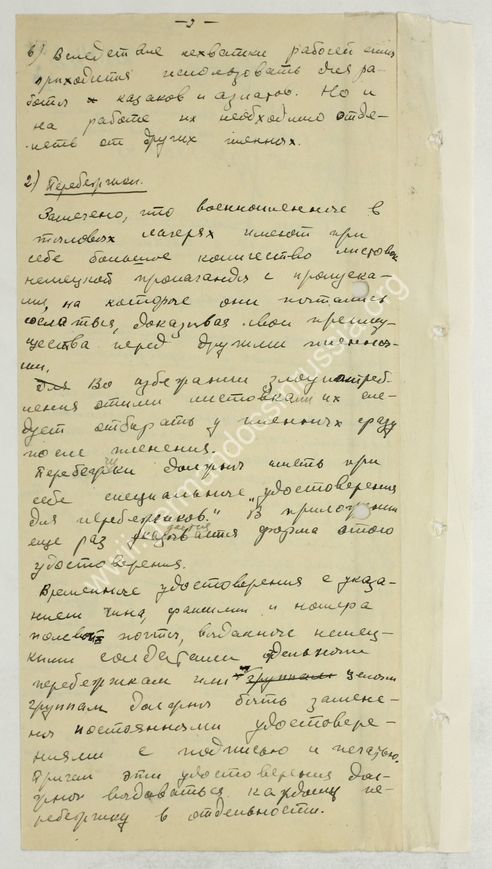 – 2 –
в) Вследствие нехватки рабочей силы
приходится использовать для ра-
боты казаков и азиатов. Но и
на работе их необходимо отде-
лять от других пленных.
2) Перебежчики.
Замечено, что военнопленные в
тыловых лагерях имеют при
себе большое количество листовок
немецкой пропаганды с пропуска-
ми, на которые они пытались
сослаться, доказывая свои преиму-
щества перед другими пленны-
ми.
Для Во избежании злоупотреб-
ления этими листовками их сле-
дует отбирать у пленных сразу
после пленения.
Перебежчики должны иметь при
себе специальные "удостоверения
для перебежчиков." В приложении
еще раз указывается форма этого
удостоверения.
Временные удостоверения с указа-
нием чина, фамилии и номера
полевой почты, выданные немец-
кими солдатами отдельным
перебежчикам или группам целым
группам должны быть замене-
ны постоянными удостовере-
ниями с подписью и печатью.
Причем эти удостоверения дол-
жны выдаваться каждому пе-
ребежчику в отдельности.
www.germandocsinrussia.org